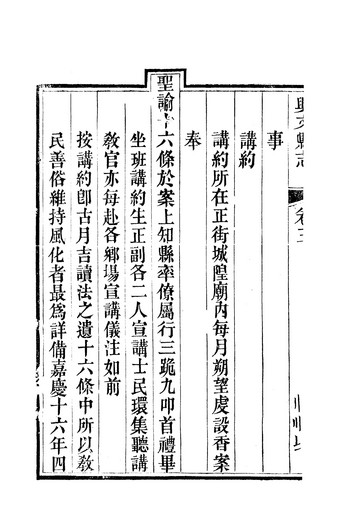 興文縣志
卷三
事
講約
講約所在正街城隍廟內每月朔望虔設香案
奉
聖諭十六條於案上知縣率僚屬行三跪九叩首禮畢
坐班講約生正副各二人宣講士民環集聽講
敎官亦每赴各鄉場宣講儀注如前
按講約卽古月吉讀法之遺十六條中所以敎
民善俗維持風化者最爲詳備嘉慶十六年四